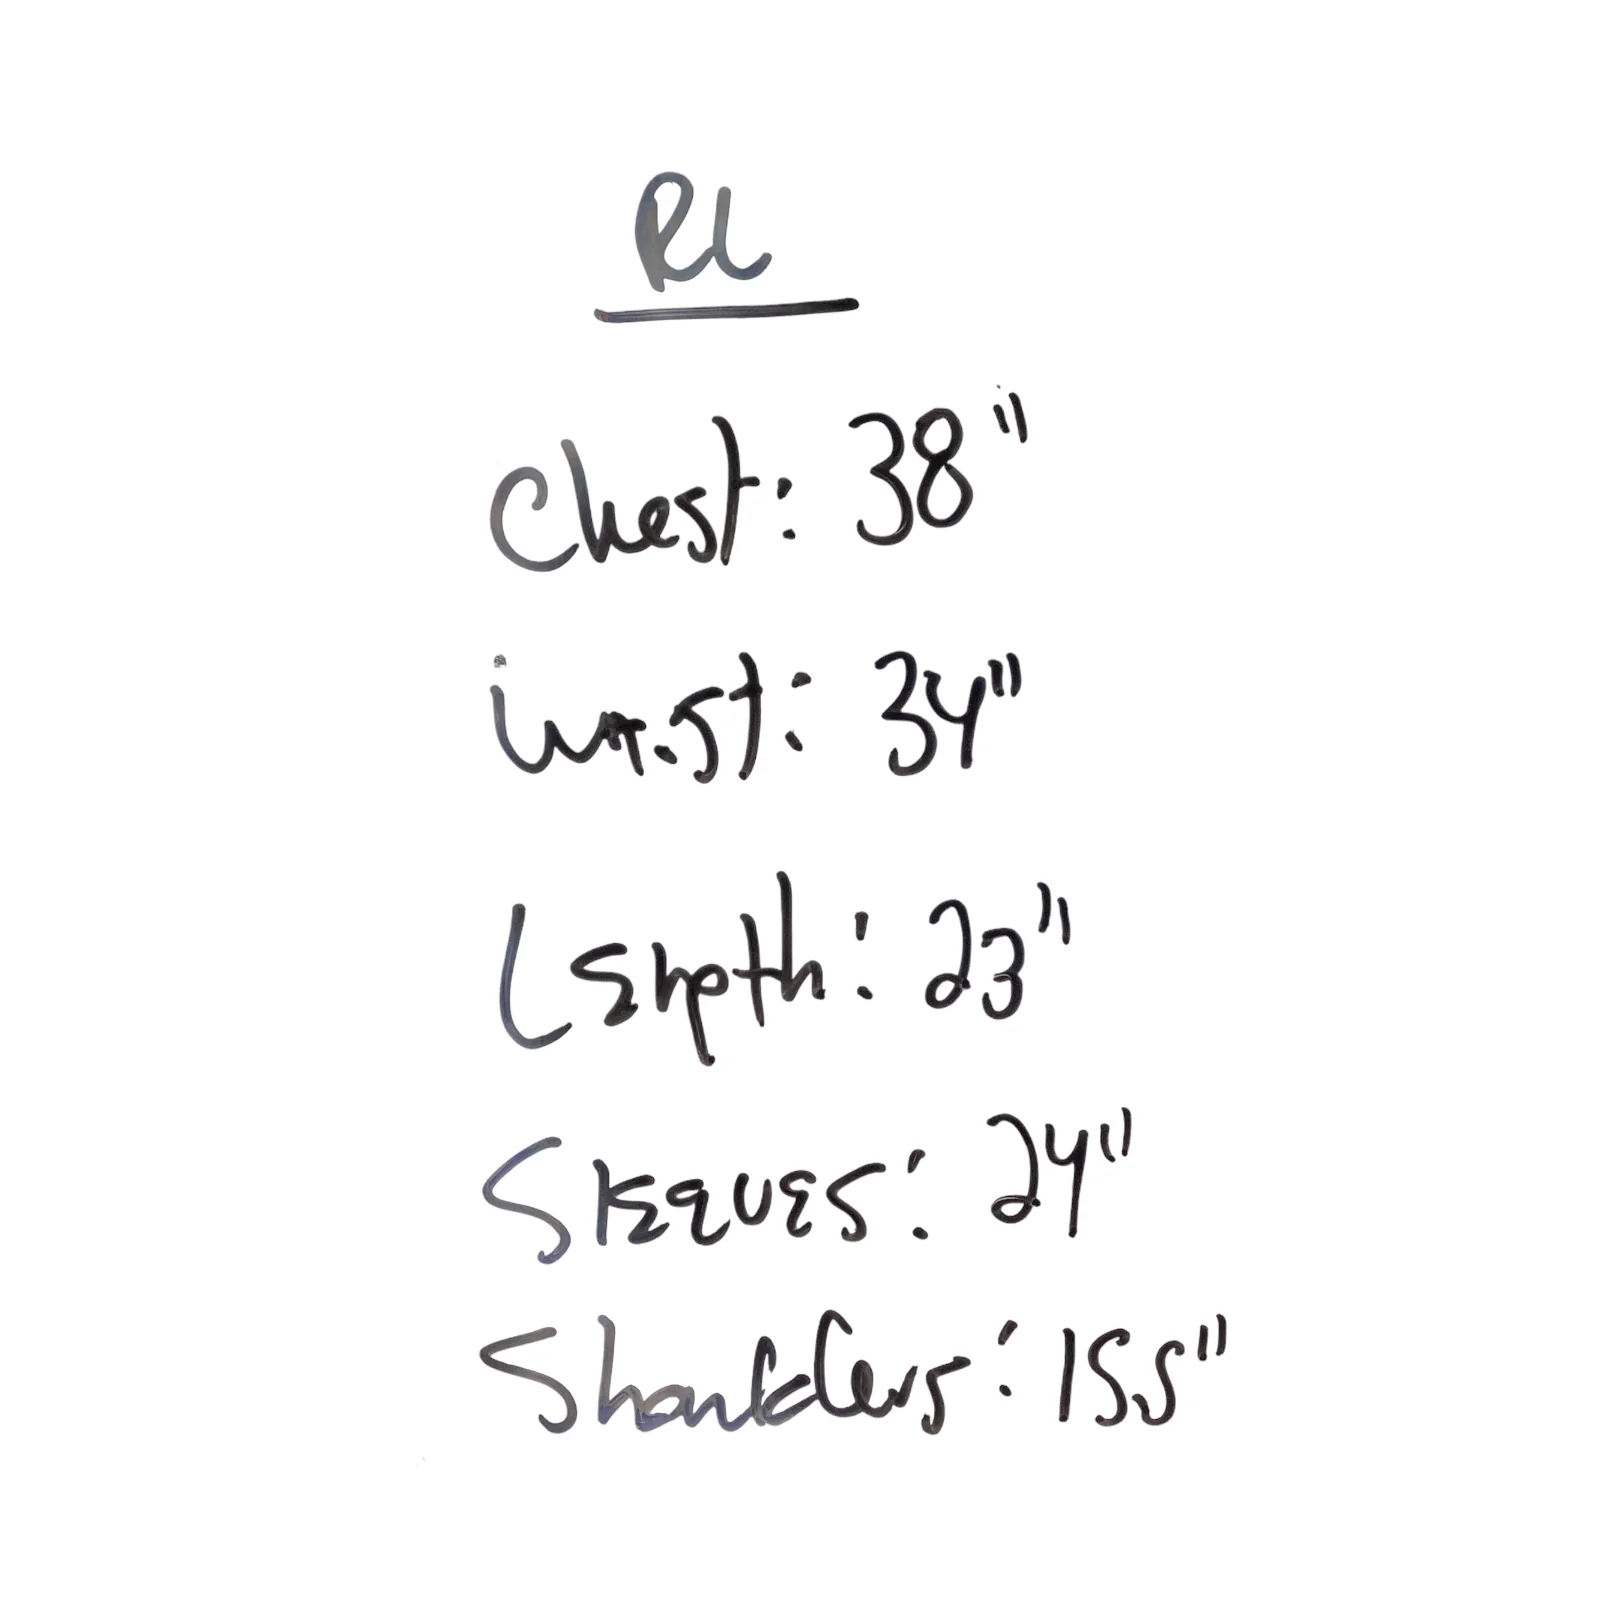 RL
Chest: 38"
Waist: 34"
Length: 23"
Sleeves: 24"
Shoulders: 15.5"